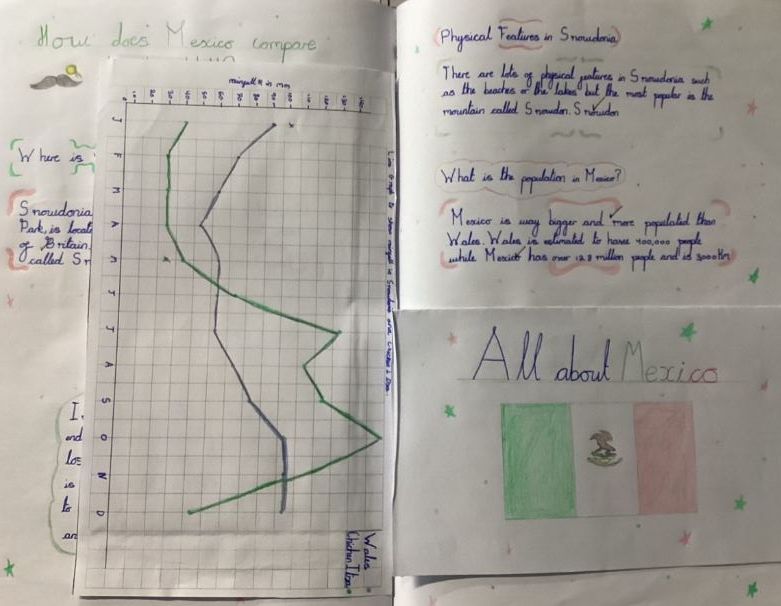 How does Mexico compare
Where is
Snowdonia
Park, is locat
of Britain.
called Sn
I.
end
los
is
to
an
rainfall in mm
J
F
M
A
M
J
J
A
S
O
N
D
Line Graph to show rainfall in Snowdonia and Chichen Itza.
Wales
Chichen Itza
Physical Features in Snowdonia
There are lots of physical features in Snowdonia such
as the beaches or the lakes but the most popular is the
mountain called Snowdon. Snowdon
What is the population in Mexico?
Mexico is way bigger and more populated than
Wales. Wales is estimated to have 400,000 people
while Mexico has over 12.8 million people and is 3000km
All about Mexico